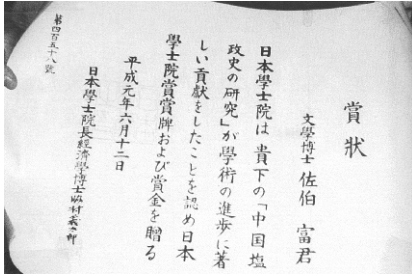 賞狀
文學博士 佐伯 富君
日本學士院は貴下の「中国塩
政史の研究」が學術の進歩に著
しい貢献をしたことを認め日本
學士院賞賞牌および賞金を贈る
平成元年六月十二日
日本學士院長經濟學博士脇村義太郎
第四百五十八號